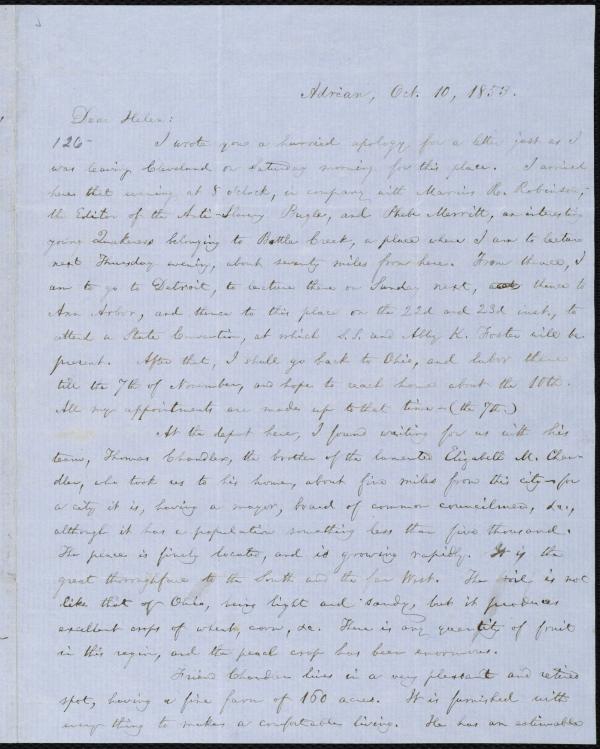 Adrian, Oct. 10, 1853.
Dear Helen:
126- I wrote you a hurried apology for a letter just as I
was leaving Cleveland on Saturday morning for this place. I arrived
here that evening at 8 o'clock, in company with Marius R. Robinson,
the Editor of the Anti-Slavery Bugle, and Phebe Merritt, an interesting
young Quakeress belonging to Battle Creek, a place where I am to lecture
next Thursday evening, about seventy miles from here. From thence, I
am to go to Detroit, to lecture there on Sunday next, thence to
Ann Arbor, and thence to this place on the 22d and 23d inst., to
attend a State Convention, at which S.S. and Abby K. Foster will be
present. After that, I shall go back to Ohio, and labor there
till the 7th of November, and hope to reach home about the 10th.
All my appointments are made up to that time—(the 7th.)
At the depot here, I found waiting for us with his
team, Thomas Chandler, the brother of the lamented Elizabeth M. Chan-
dler, who took us to his house, about five miles from this city—for
a city it is, having a mayor, board of common councilmen, &c.,
although it has a population something less than five thousand.
The place is finely located, and is growing rapidly. It is the
great thoroughfare to the South and the far West. The soil is not
like that of Ohio, being light and sandy, but it produces
excellent crops of wheat, corn, &c. There is any quantity of fruit
in this region, and the peach crop has been enormous.
Friend Chandler lives in a very pleasant and retired
spot, having a fine farm of 160 acres. It is furnished with
every thing to make a comfortable living. He has an estimable